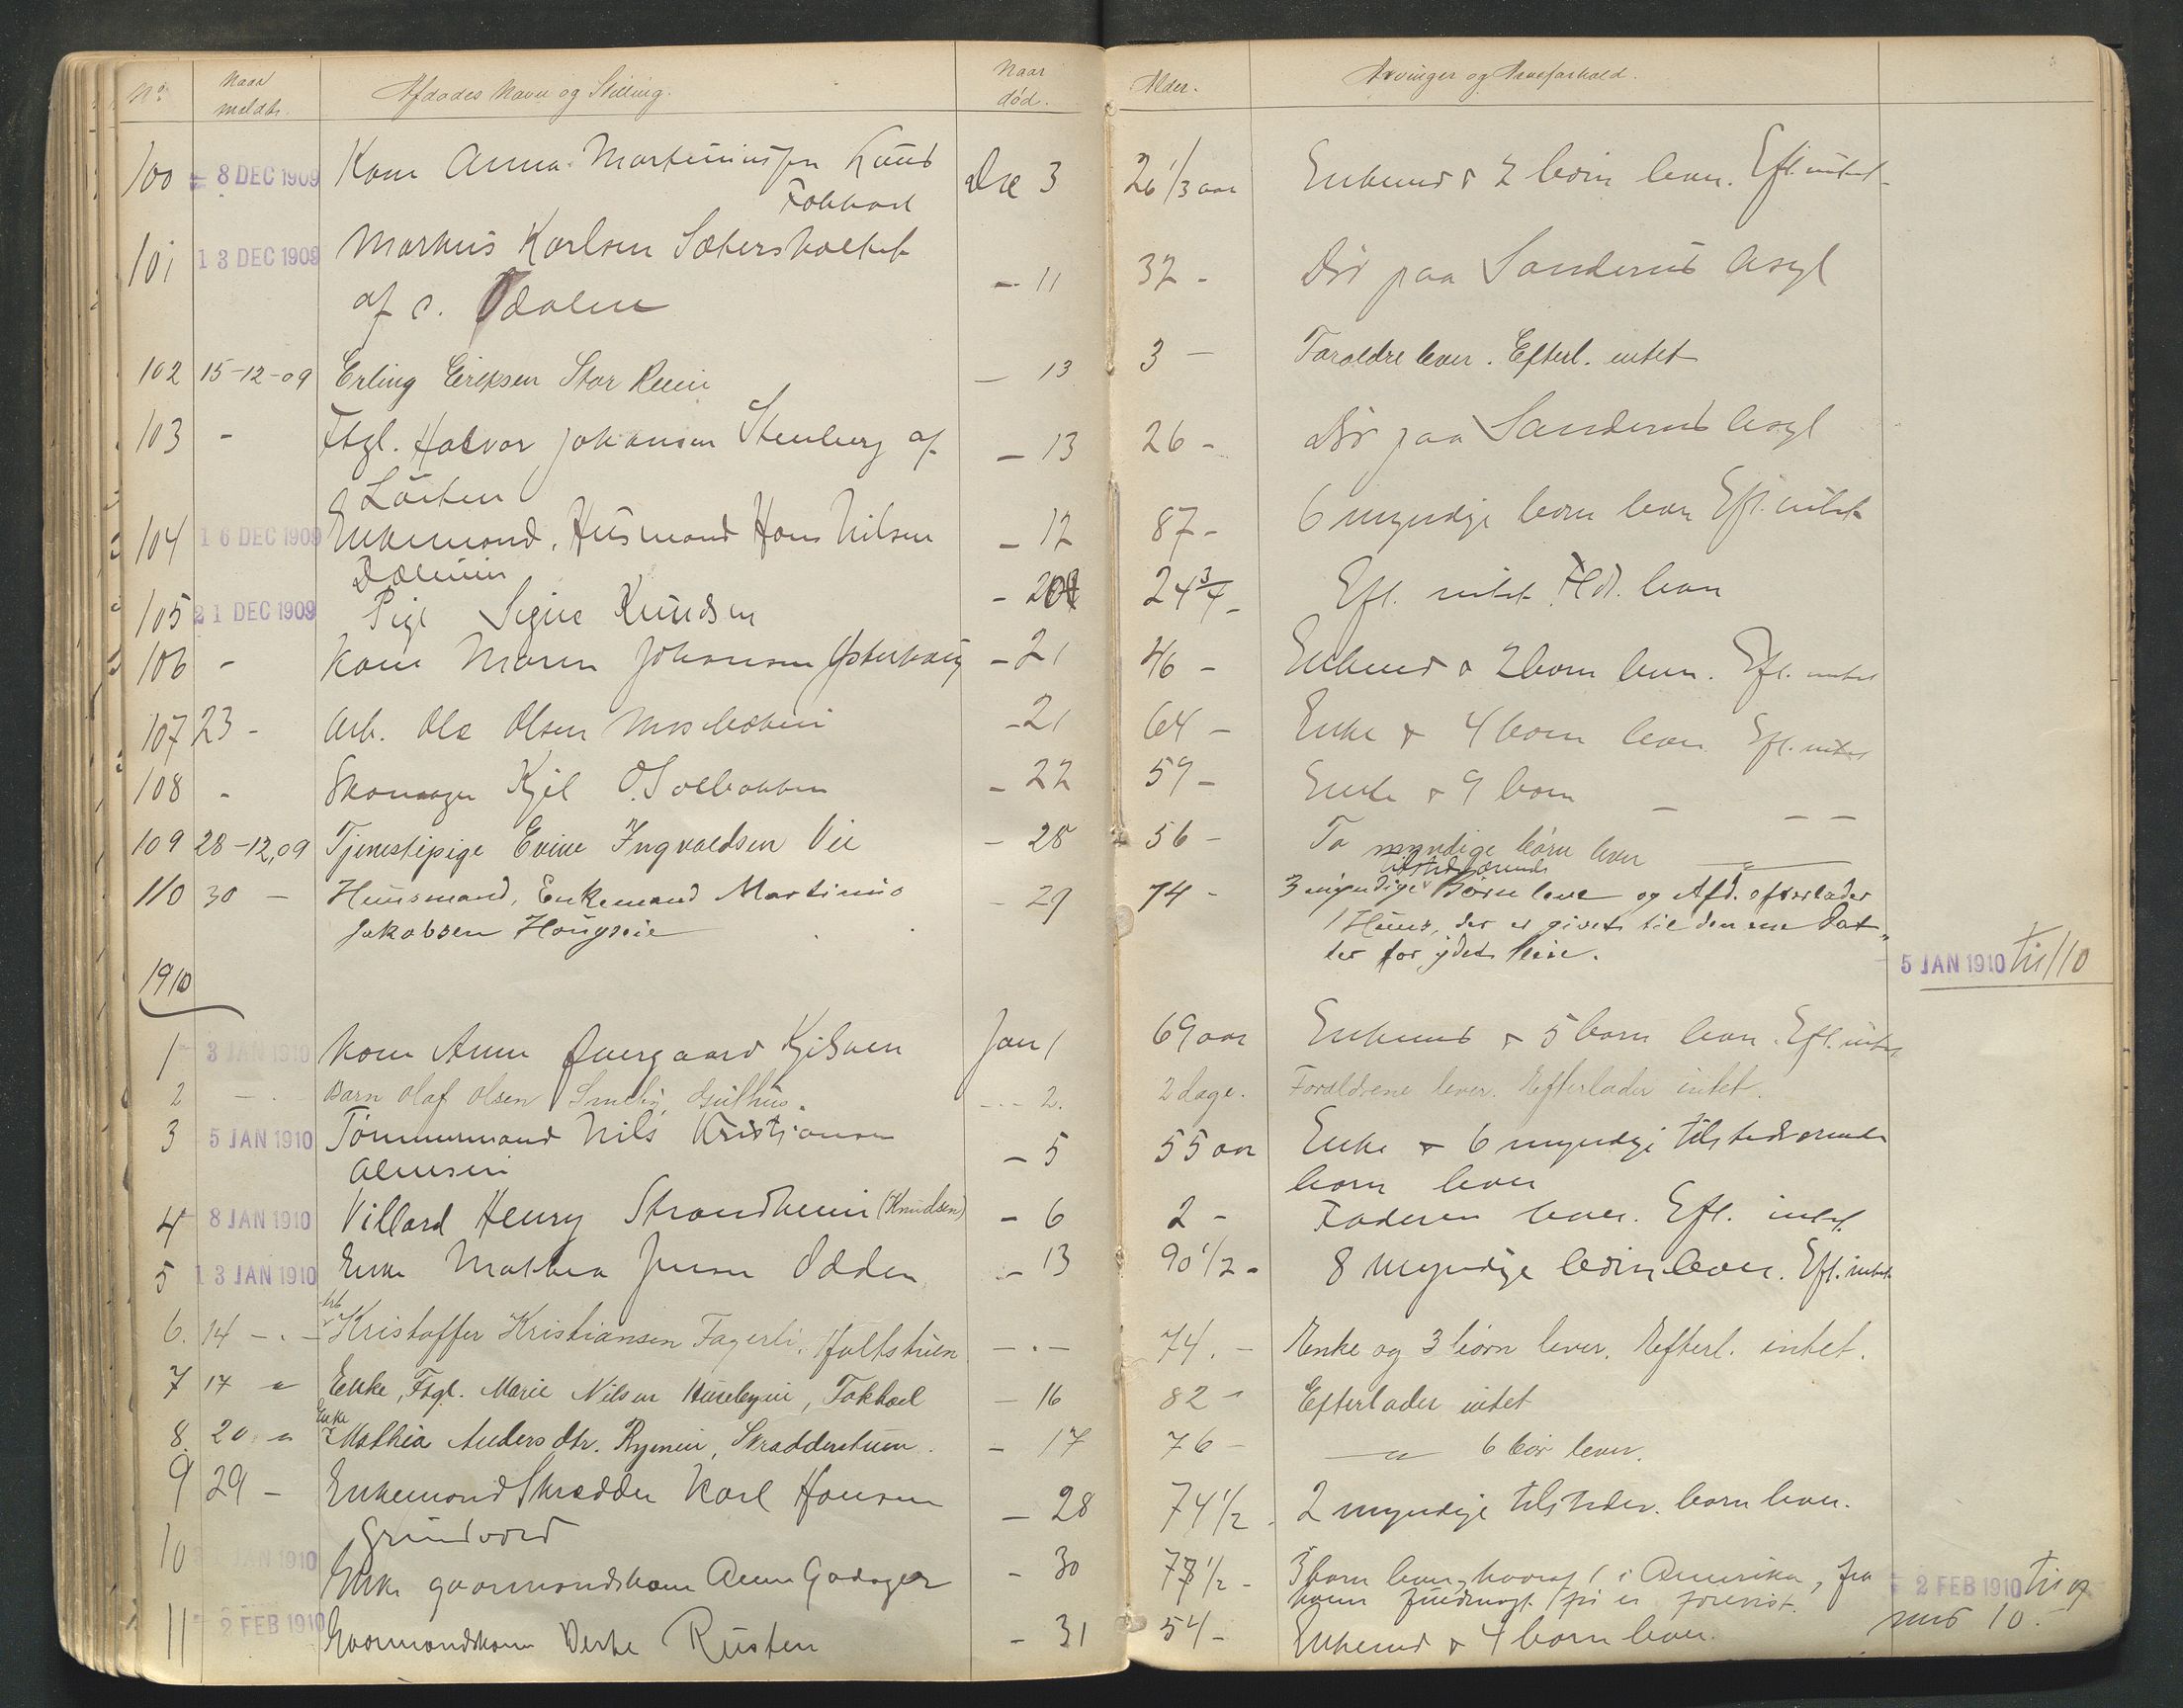 No. Naar meldt. Afdødes Navn og Stilling. Naar død. Alder. Arvinger og Arveforhold.
100 8 DEC 1909 Kone Anna Martinius Lund Dec 3 26 1/3 aar Enkemd & 2 børn lever. Efl. intet
101 13 DEC 1909 Markus Karlsen Sætersholtet
af s. Odalen — 11 32 - Død paa Sanderud Asyl
102 15-12-09 Erling Eriksen Stor Rein — 13 3 — Forældre lever. Efterl. intet
103 - Ftgl. Halvor Johansen Stenberg af — 13 26 - Død paa Sanderud Asyl
Løiten
104 16 DEC 1909 Enkemand, Husmand Hans Nilsen — 12 87 - 6 myndige børn lever Efl. intet
105 21 DEC 1909 Pige Signe Knudsen - 20 24 3/4 - Efl. intet. lever
106 - Kone Maren Johansen - 21 46 - Enkemd & 2 børn lever. Efl. intet
107 23 - Arb. Ole Olsen - 21 64 - Enke & 4 børn lever Efl. intet
108 - Skomager Kjel O. Solbakken - 22 59 - Enke & 9 børn — — —
109 28-12,09 Tjenestepige Evine Ingvaldsen Vie - 28 56 - To myndige børn lever — " —
110 30 — Huusmand, Enkemand Martinius - 29 74 - 3 myndige tilstedværende Børn lever og Afd. efterlader
Jakobsen Haugseie 1 Huus, der er givet til den ene Dat„
ter for ydet leie.
5 JAN 1910 til 110
1910
1 3 JAN 1910 Kone Anne Øvergaard Kjelsen Jan 1 69 aar Enkemd & 5 børn lever. Efl. intet
2 — . — Barn Olaf Olsen Smeby, — . — 2. 2 dage. Forældrene lever. Efterlader intet.
3 5 JAN 1910 Tømmermand Nils Kristiansen — 5 55 aar Enke & 6 myndige tilstedværende
Almseie børn lever
4 8 JAN 1910 Villard Henry Strandheim (Knudsen) - 6 2 - Faderen lever. Efl. intet.
5 13 JAN 1910 Enke Mathea Jensen Odden - 13 90 1/2 - 8 myndige børn lever. Efl. intet
6. 14 — . — Arb. Kristoffer Kristiansen Fagerli, — . — 74. - Enke og 3 børn lever. Efterl. intet.
7 17 " Enke, Ftgl. Marie Nilsen Husebyeie, — 16 82 - Efterlader intet
8. 20 " Enke Mathia Andersdtr. Rymeie, Skradderstuen. — 17 76 - — " — 6 bør lever.
9 29 - Enkemand Skrædder Karl Hansen — 28 74 1/2 - 2 myndige tilstedev. børn lever.
Grundvold
10 JAN 1910 Enke gaarmandskone Anne Godager - 30 1/2 - 3 børn lever, hvoraf 1 i Amerika, fra
hvem fuldmagt er forevist.
2 FEB 1910 til og
med 10.
11 2 FEB 1910 Gaarmandskone Berte Rusten - 31 54 - Enkemd & 4 børn lever.